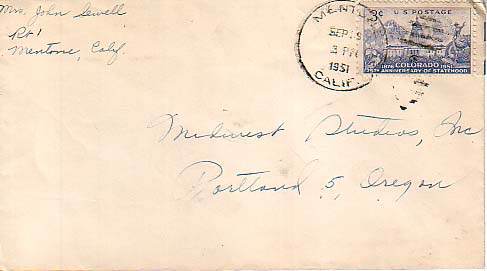 Mrs. John Sewell
Rt 1
Mentone, Calif.
SEP 19
3 PM
1951
CALIF.
3¢ U.S. POSTAGE
1876 COLORADO 1951
75th ANNIVERSARY OF STATEHOOD
Midwest Studios, Inc
Portland 5, Oregon